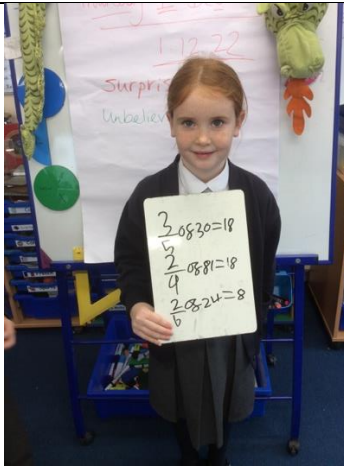 1.12.22
surpris
Unbeliev
3/5 of 30=18
2/4 of 81=18
2/6 of 24=8